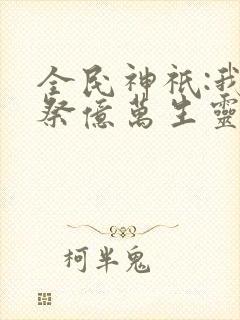 全民神祇:我
祭億萬生靈
柯半鬼